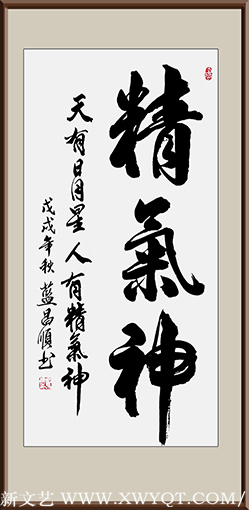 精氣神
天有日月星人有精氣神
戊戌年秋藍昌順书
新文艺 WWW.XWYQT.COM/